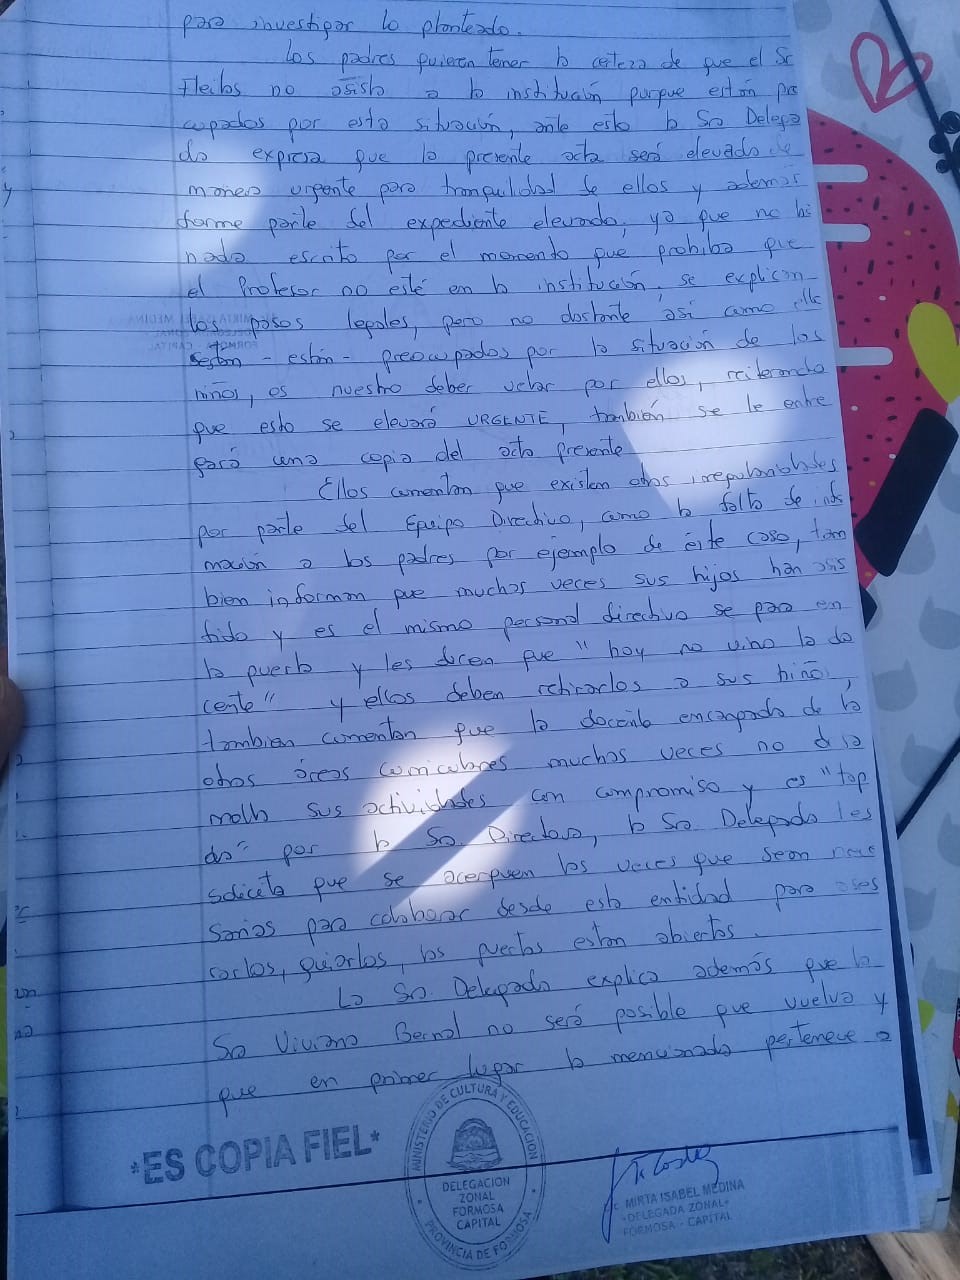 para investigar lo planteado.
Los padres quieren tener la certeza de que el Sr
Fleitas no asista a la institución porque están preo
cupados por esta situación, ante esto la Sra Delega
da expresa que la presente acta será elevada de
manera urgente para tranquilidad de ellos y además
forme parte del expediente elevado, ya que no hay
nada escrito por el momento que prohiba que
el Profesor no esté en la institución. se explican
los pasos legales, pero no obstante así como ellos
están - están - preocupados por la situación de los
niños, es nuestro deber velar por ellos, reiterando
que esto se elevará URGENTE, también se le entre
gará una copia del acta presente
Ellos comentan que existen otras irregularidades
por parte del Equipo Directivo, como la falta de info
mación a los padres por ejemplo de éste caso, tam
bien informan que muchas veces sus hijos han asis
tido y es el mismo personal directivo se para en
la puerta y les dicen que "hoy no vino la do
cente" y ellos deben retirarlos a sus niños,
tambien comentan que la docente encargada de la
otras áreas curriculares muchas veces no desa
rrolla sus actividades con compromiso y es "tap
da" por la Sra. Directora, la Sra Delegada les
solicita que se acerquen las veces que sean nece
sarias para colaborar desde esta entidad para ases
rarlos, guiarlos, las puertas estan abiertas.
La Sra Delegada explica además que la
Sra Viviana Bernal no será posible que vuelva y
que en primer lugar la mencionada pertenece a
*ES COPIA FIEL*
MINISTERIO DE CULTURA Y EDUCACION
DELEGACION
ZONAL
FORMOSA
CAPITAL
PROVINCIA DE FORMOSA
MIRTA ISABEL MEDINA
DELEGADA ZONAL
FORMOSA - CAPITAL